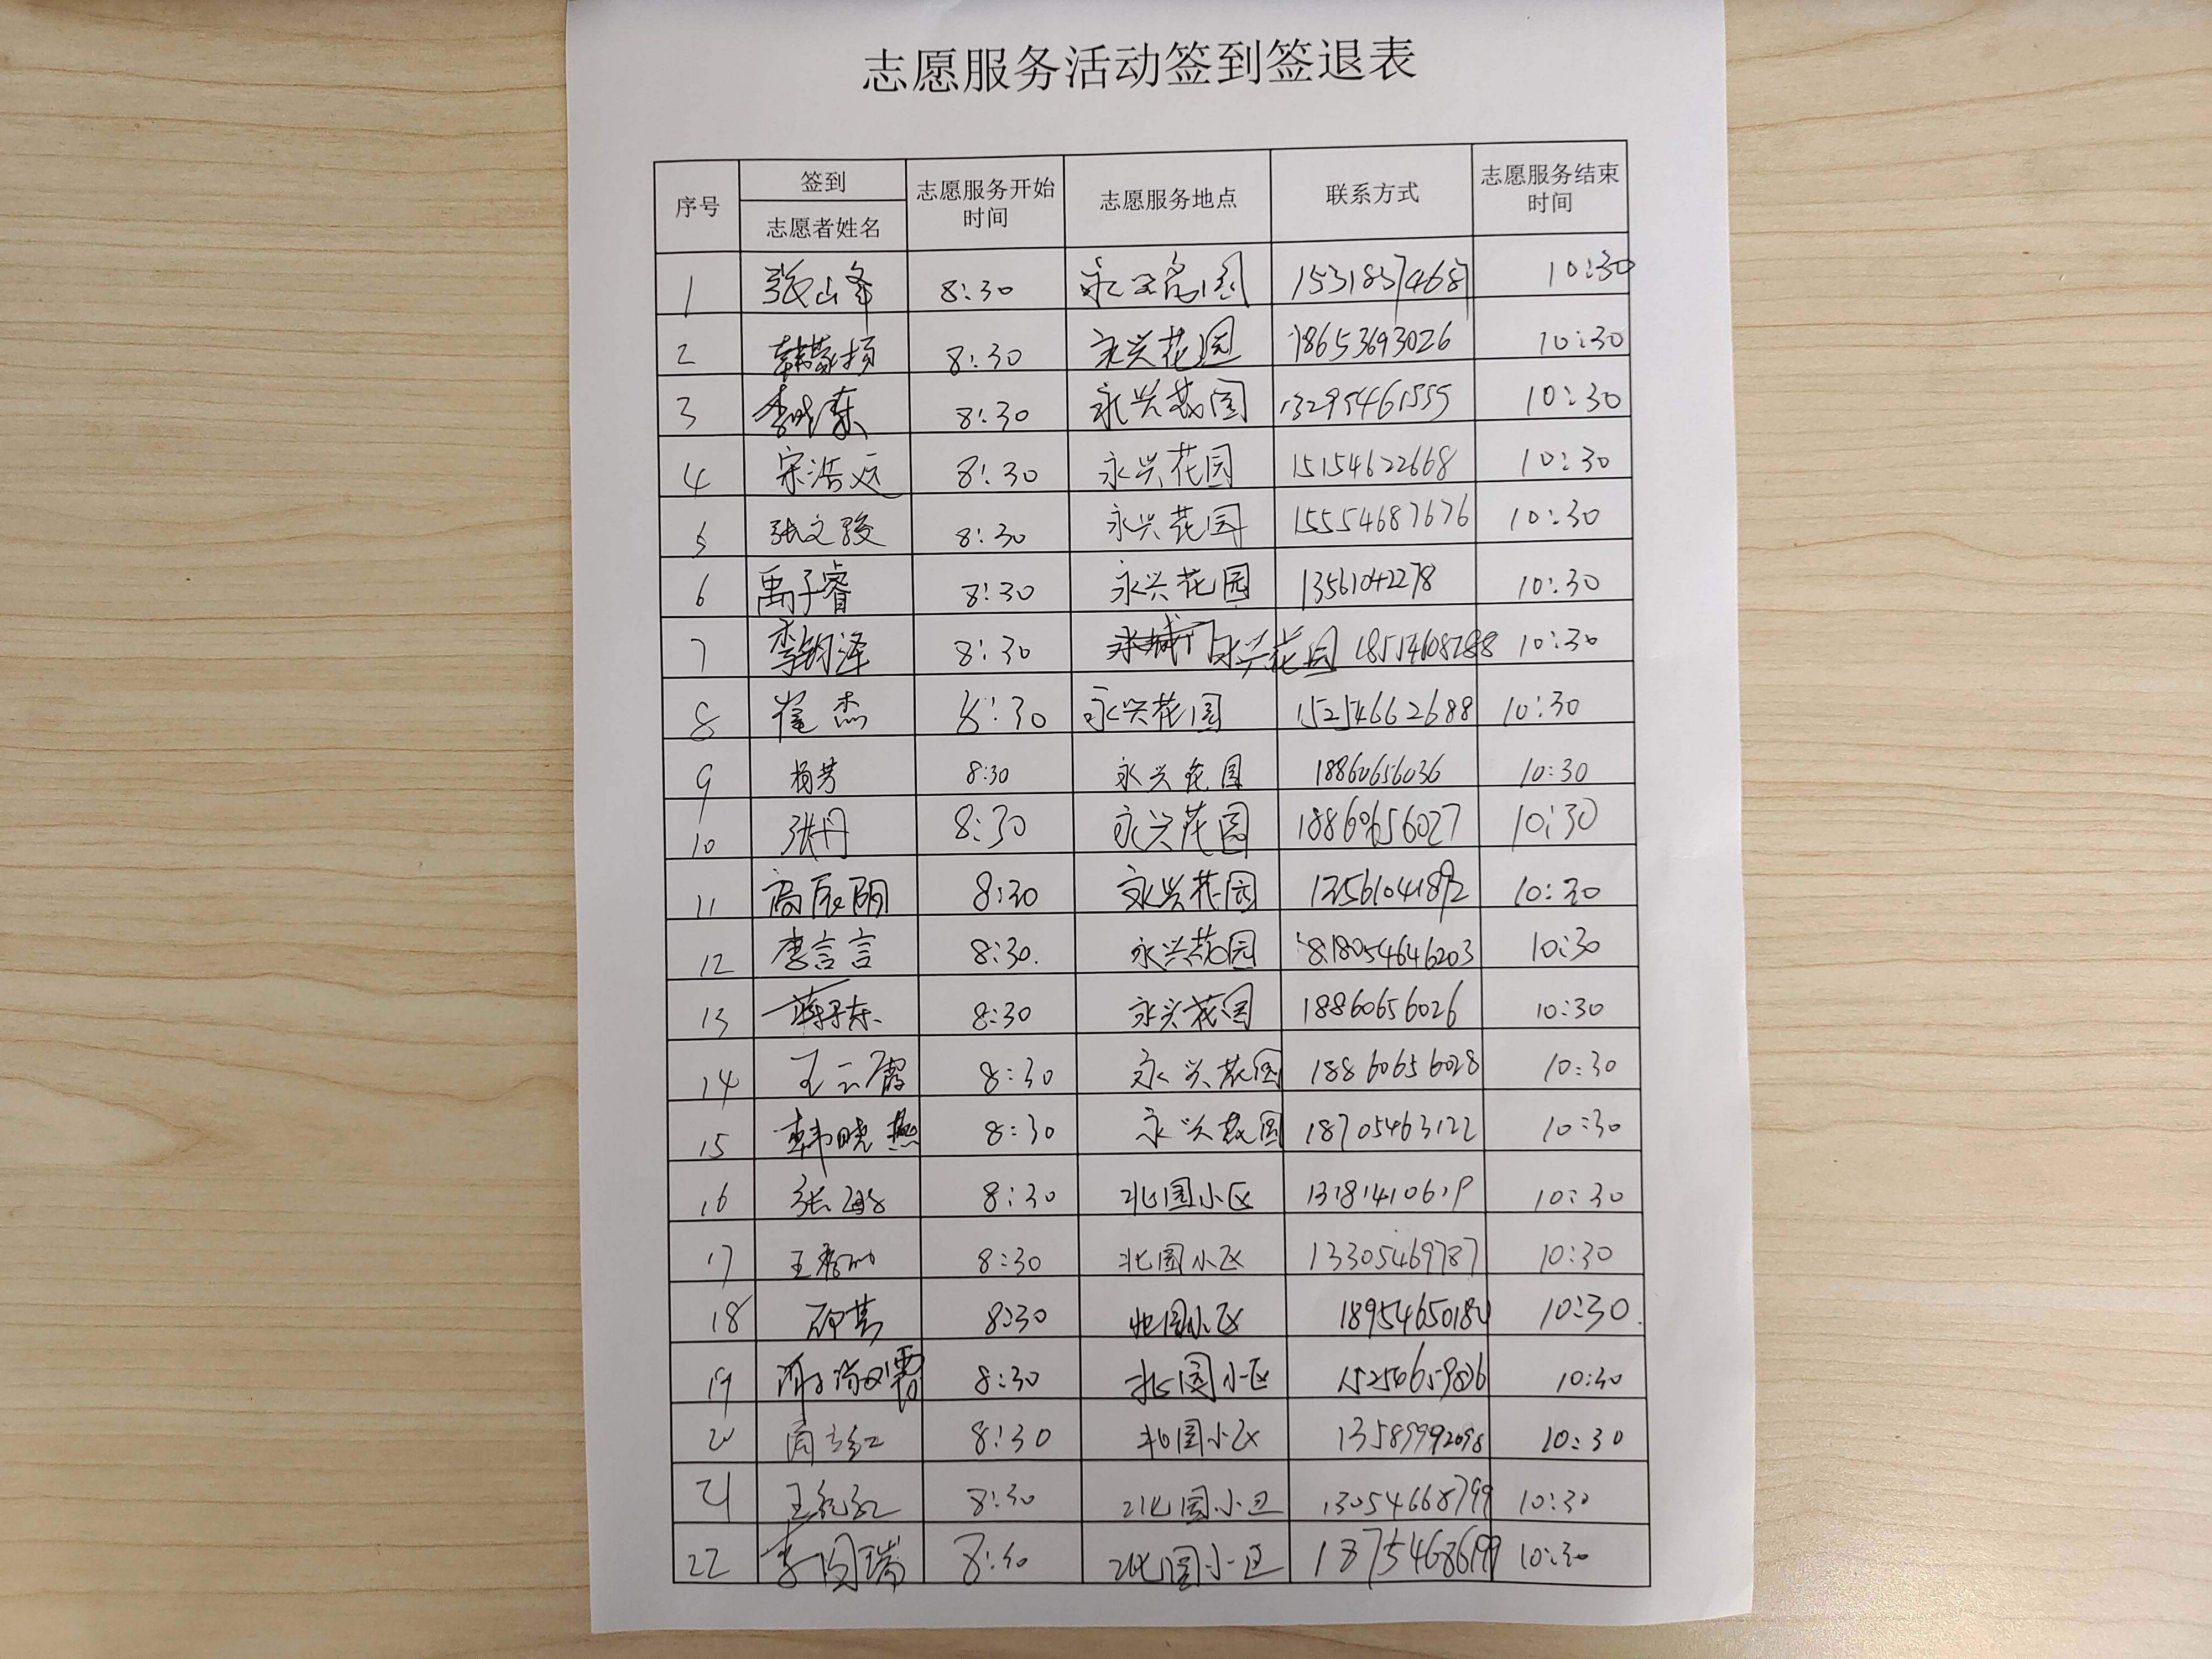 志愿服务活动签到签退表
序号 签到 志愿者姓名 志愿服务开始时间 志愿服务地点 联系方式 志愿服务结束时间
1 张山峰 8:30 园 15318374687 10:30
2 韩 8:30 永兴花园 18653693026 10:30
3 李晓东 8:30 永兴花园 13295461555 10:30
4 宋浩远 8:30 永兴花园 15154622668 10:30
5 张文骏 8:30 永兴花园 15554687676 10:30
6 禹子睿 8:30 永兴花园 13561042278 10:30
7 李钧泽 8:30 永兴花园 10:30
8 崔杰 8:30 永兴花园 15254662688 10:30
9 杨芳 8:30 永兴花园 18860656036 10:30
10 张丹 8:30 永兴花园 18860656027 10:30
11 高辰 8:30 永兴花园 13561041892 10:30
12 李言言 8:30. 永兴花园 18054646203 10:30
13 蒋子东 8:30 永兴花园 18860656026 10:30
14 王云霞 8:30 永兴花园 18860656028 10:30
15 韩晓燕 8:30 永兴花园 18705463122 10:30
16 张 8:30 北国小区 10:30
17 王 8:30 北国小区 13305469787 10:30
18 8:30 北国小区 10:30
19 8:30 北国小区 10:30
20 周立红 8:30 北国小区 13589992098 10:30
21 王 8:30 北国小区 13054668799 10:30
22 李国瑞 8:30 北国小区 10:30